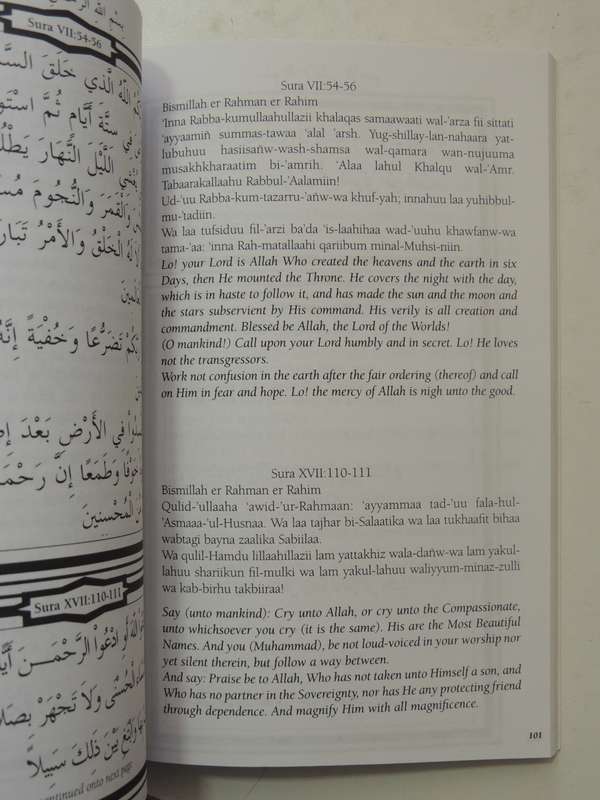 بِسْمِ اللهِ
Sura VII:54-56
اللهُ الَّذِي خَلَقَ
سِتَّةِ أَيَّامٍ ثُمَّ
اللَّيْلَ النَّهَارَ
وَالْقَمَرَ وَالنُّجُومَ
لَهُ الْخَلْقُ وَالأَمْرُ
تَضَرُّعًا وَخُفْيَةً
فِي الأَرْضِ بَعْدَ
وَطَمَعًا إِنَّ
الْمُحْسِنِينَ
Sura XVII:110-111
اللهَ أَوِ ادْعُوا الرَّحْمَـنَ
الْحُسْنَى وَلاَ تَجْهَرْ
وَابْتَغِ بَيْنَ ذَلِكَ سَبِيلاً
continued onto next page
Sura VII:54-56
Bismillah er Rahman er Rahim
'Inna Rabba-kumullaahullazii khalaqas samaawaati wal-'arza fii sittati
'ayyaamiñ summas-tawaa 'alal 'arsh. Yug-shillay-lan-nahaara yat-
lubuhuu hasiisañw-wash-shamsa wal-qamara wan-nujuuma
musakhkharaatim bi-'amrih. 'Alaa lahul Khalqu wal-'Amr.
Tabaarakallaahu Rabbul-'Aalamiin!
Ud-'uu Rabba-kum-tazarru-'añw-wa khuf-yah; innahuu laa yuhibbul-
mu-'tadiin.
Wa laa tufsiduu fil-'arzi ba'da 'is-laahihaa wad-'uuhu khawfanw-wa
tama-'aa: 'inna Rah-matallaahi qariibum minal-Muhsi-niin.
Lo! your Lord is Allah Who created the heavens and the earth in six
Days, then He mounted the Throne. He covers the night with the day,
which is in haste to follow it, and has made the sun and the moon and
the stars subservient by His command. His verily is all creation and
commandment. Blessed be Allah, the Lord of the Worlds!
(O mankind!) Call upon your Lord humbly and in secret. Lo! He loves
not the transgressors.
Work not confusion in the earth after the fair ordering (thereof) and call
on Him in fear and hope. Lo! the mercy of Allah is nigh unto the good.
Sura XVII:110-111
Bismillah er Rahman er Rahim
Qulid-'ullaaha 'awid-'ur-Rahmaan: 'ayyammaa tad-'uu fala-hul-
'Asmaaa-'ul-Husnaa. Wa laa tajhar bi-Salaatika wa laa tukhaafit bihaa
wabtagi bayna zaalika Sabiilaa.
Wa qulil-Hamdu lillaahillazii lam yattakhiz wala-dañw-wa lam yakul-
lahuu shariikun fil-mulki wa lam yakul-lahuu waliyyum-minaz-zulli
wa kab-birhu takbiiraa!
Say (unto mankind): Cry unto Allah, or cry unto the Compassionate,
unto whichsoever you cry (it is the same). His are the Most Beautiful
Names. And you (Muhammad), be not loud-voiced in your worship nor
yet silent therein, but follow a way between.
And say: Praise be to Allah, Who has not taken unto Himself a son, and
Who has no partner in the Sovereignty, nor has He any protecting friend
through dependence. And magnify Him with all magnificence.
101